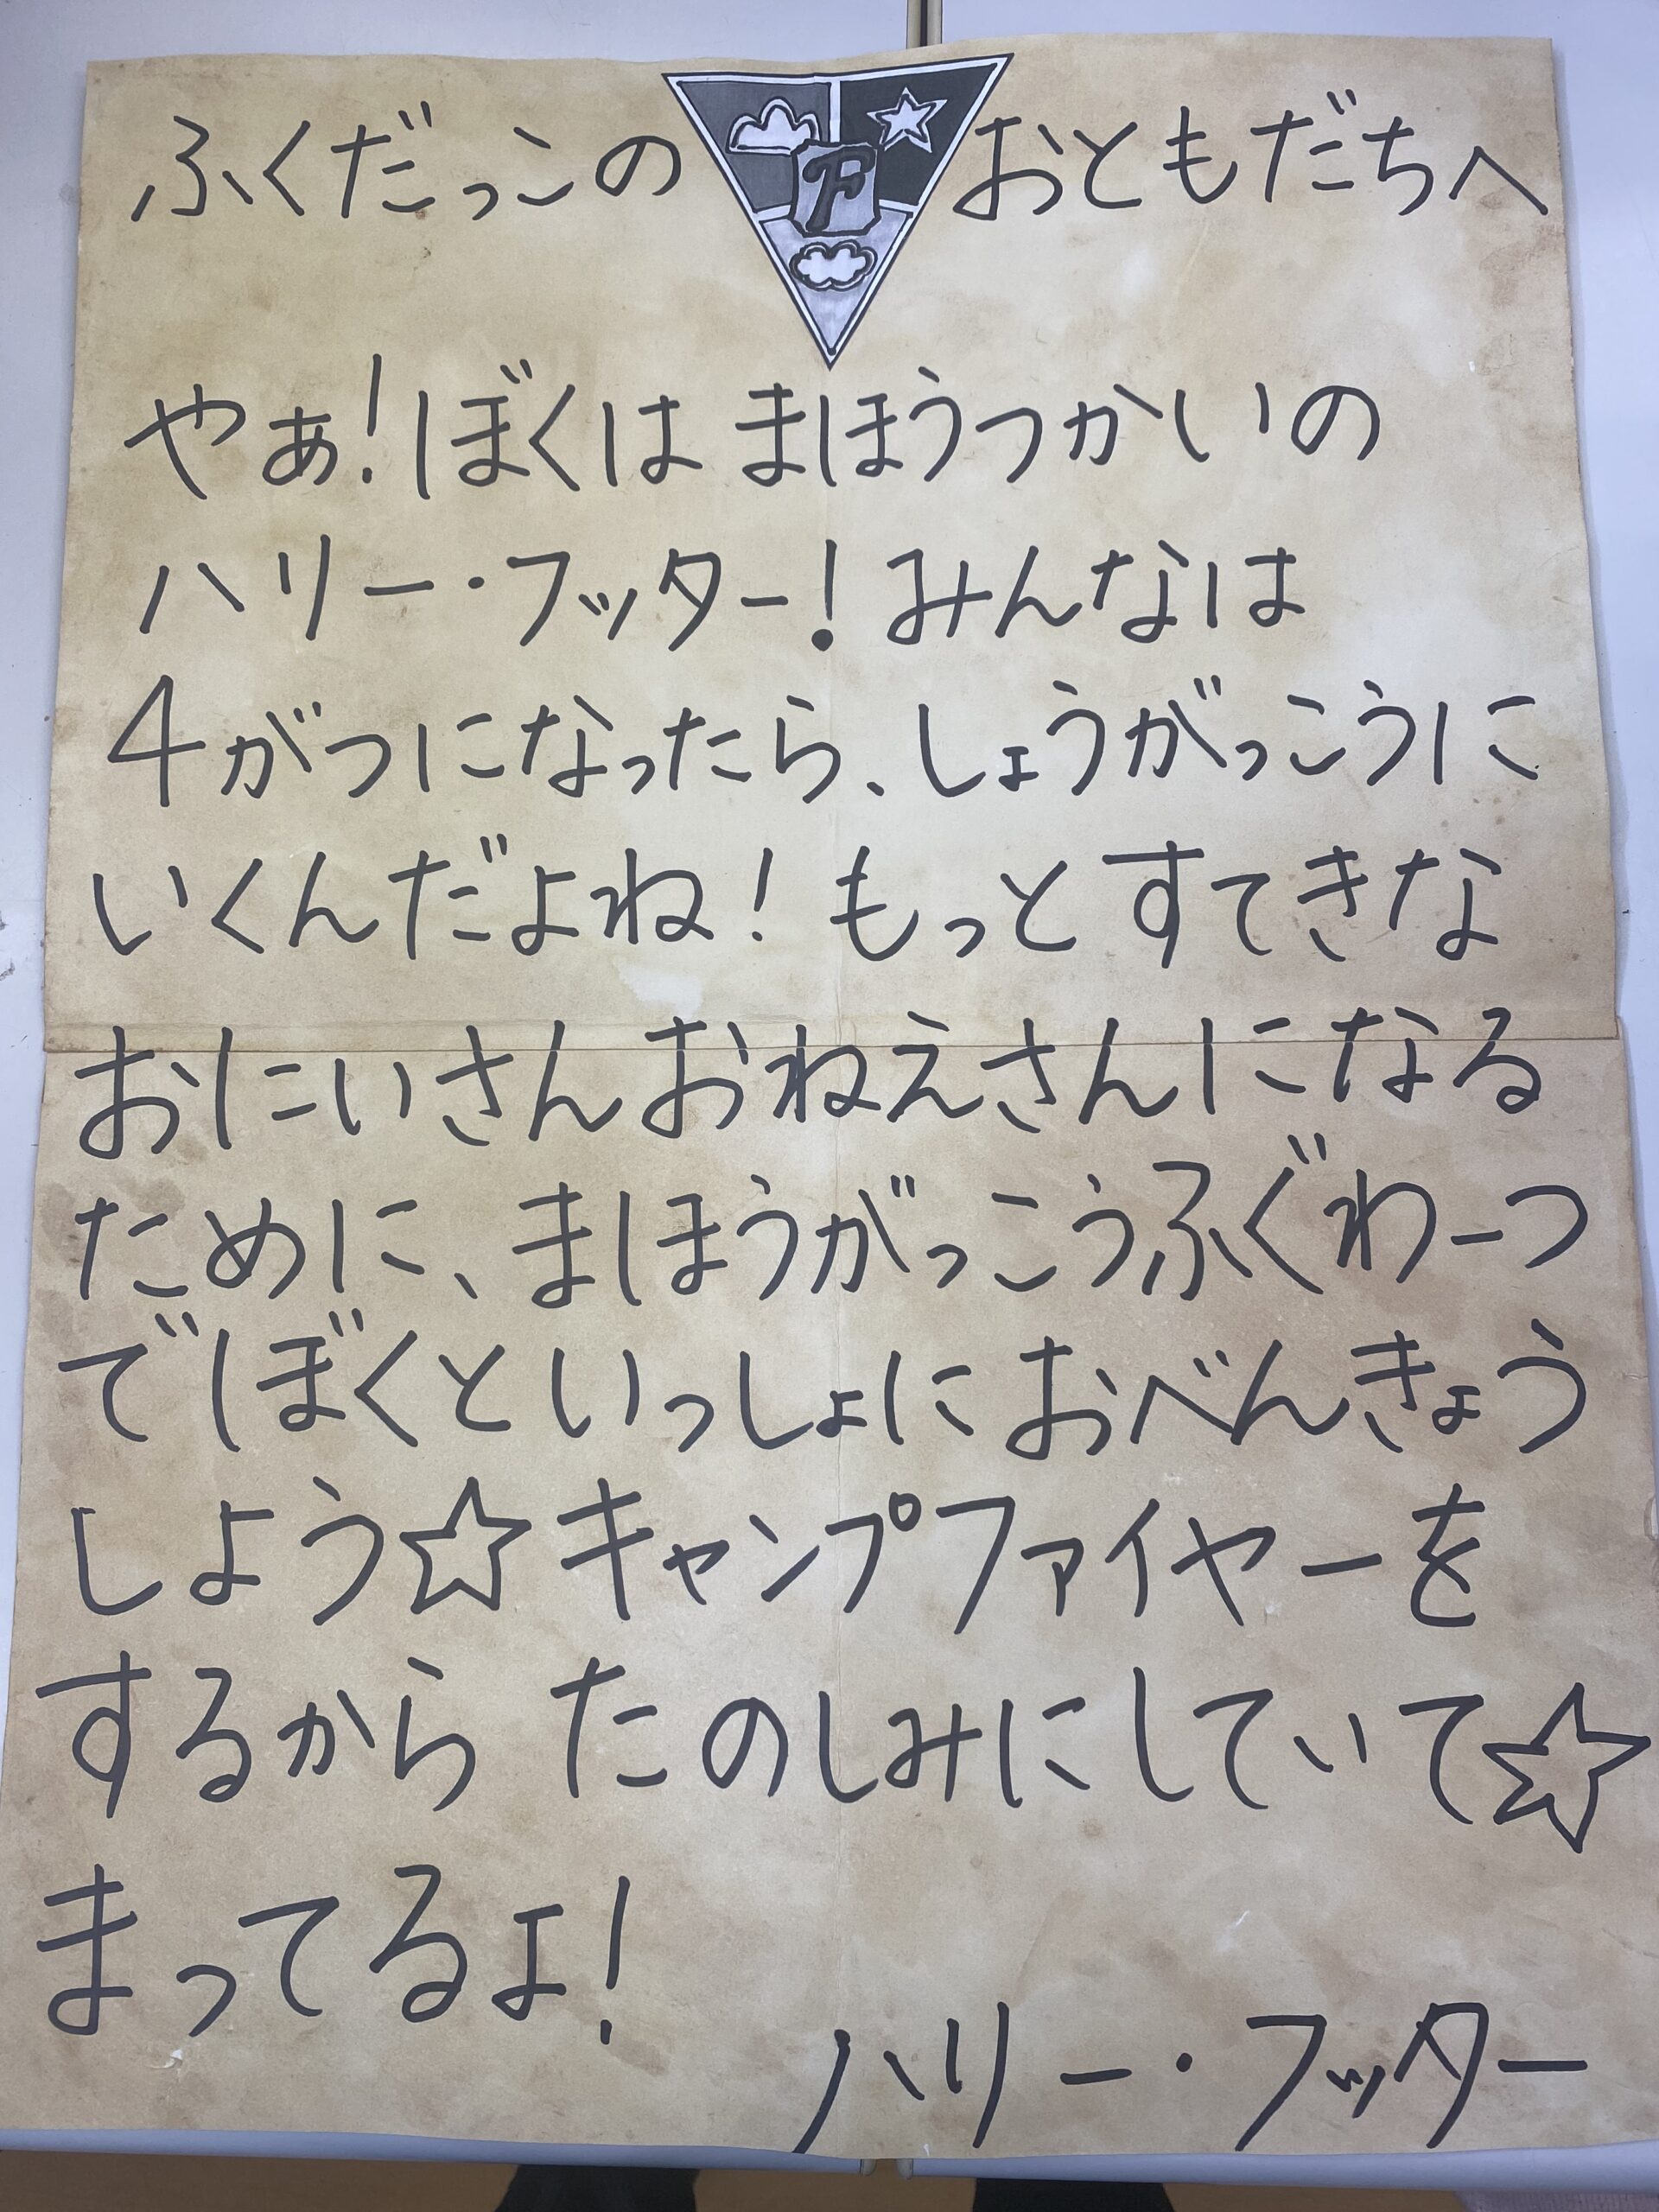 ふくだっこの F おともだちへ
やぁ!ぼくは まほうつかいの
ハリー・フッター! みんなは
4がつになったら、しょうがっこうに
いくんだよね! もっと すてきな
おにいさんおねえさんになる
ために、まほうがっこうふぐわーつ
でぼくといっしょに おべんきょう
しよう☆ キャンプファイヤーを
するから たのしみにしていて☆
まってるよ!
ハリー・フッター